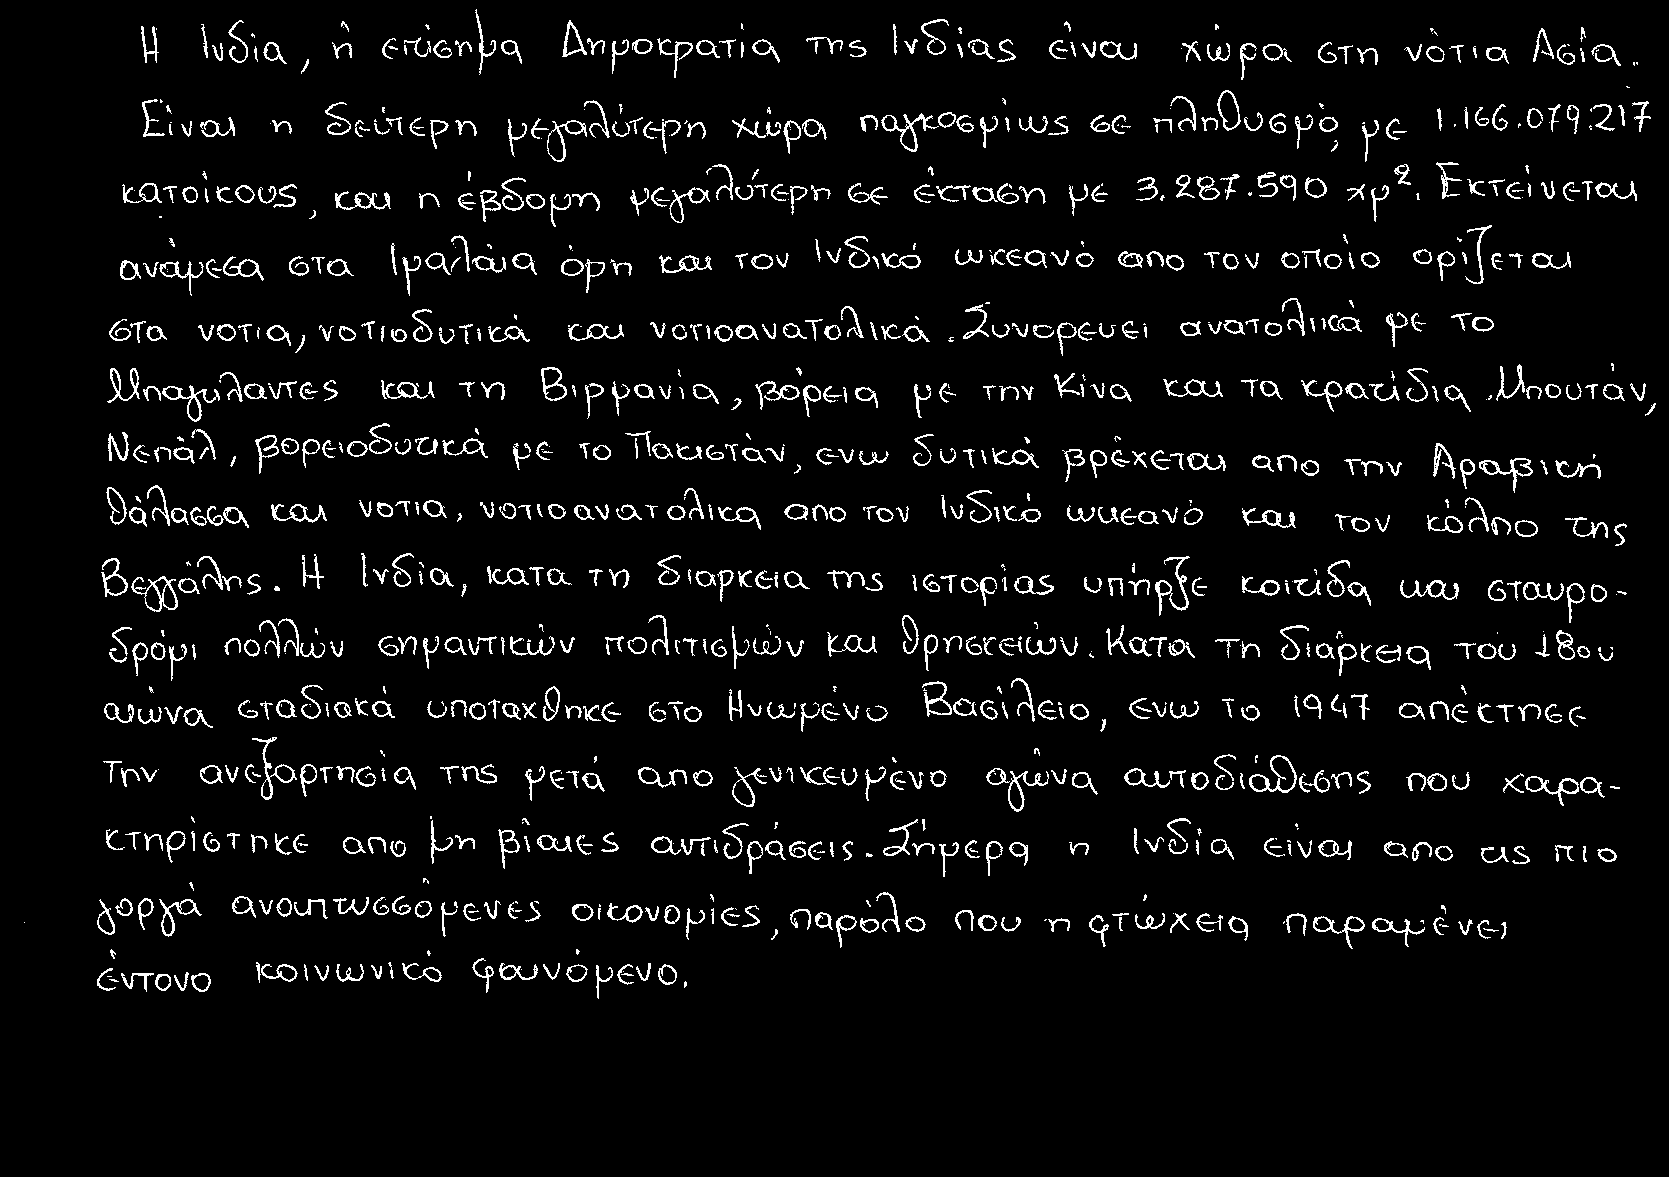 Η Ινδία, ή επίσημα Δημοκρατία της Ινδίας είναι χώρα στη νότια Ασία.
Είναι η δεύτερη μεγαλύτερη χώρα παγκοσμίως σε πληθυσμό, με 1.166.079.217
κατοίκους, και η έβδομη μεγαλύτερη σε έκταση με 3.287.590 χμ². Εκτείνεται
ανάμεσα στα Ιμαλάια όρη και τον Ινδικό ωκεανό απο τον οποίο ορίζεται
στα νοτια, νοτιοδυτικά και νοτιοανατολικά. Συνορευει ανατολικά με το
Μπαγκλαντες και τη Βιρμανία, βόρεια με την Κίνα και τα κρατίδια Μπουτάν,
Νεπάλ, βορειοδυτικά με το Πακιστάν, ενω δυτικά βρέχεται απο την Αραβική
θάλασσα και νοτια, νοτιοανατολικα απο τον Ινδικό ωκεανό και τον κόλπο της
Βεγγάλης. Η Ινδία, κατα τη διαρκεια της ιστορίας υπήρξε κοιτίδα και σταυρο-
δρόμι πολλών σημαντικών πολιτισμών και θρησκειών. Κατα τη διάρκεια του 18ου
αιώνα σταδιακά υποταχθηκε στο Ηνωμένο Βασίλειο, ενω το 1947 απέκτησε
την ανεξαρτησία της μετά απο γενικευμένο αγώνα αυτοδιάθεσης που χαρα-
κτηρίστηκε απο μη βίαιες αντιδράσεις. Σήμερα η Ινδία είναι απο τις πιο
γοργά αναπτυσσόμενες οικονομίες, παρόλο που η φτώχεια παραμένει
έντονο κοινωνικό φαινόμενο.